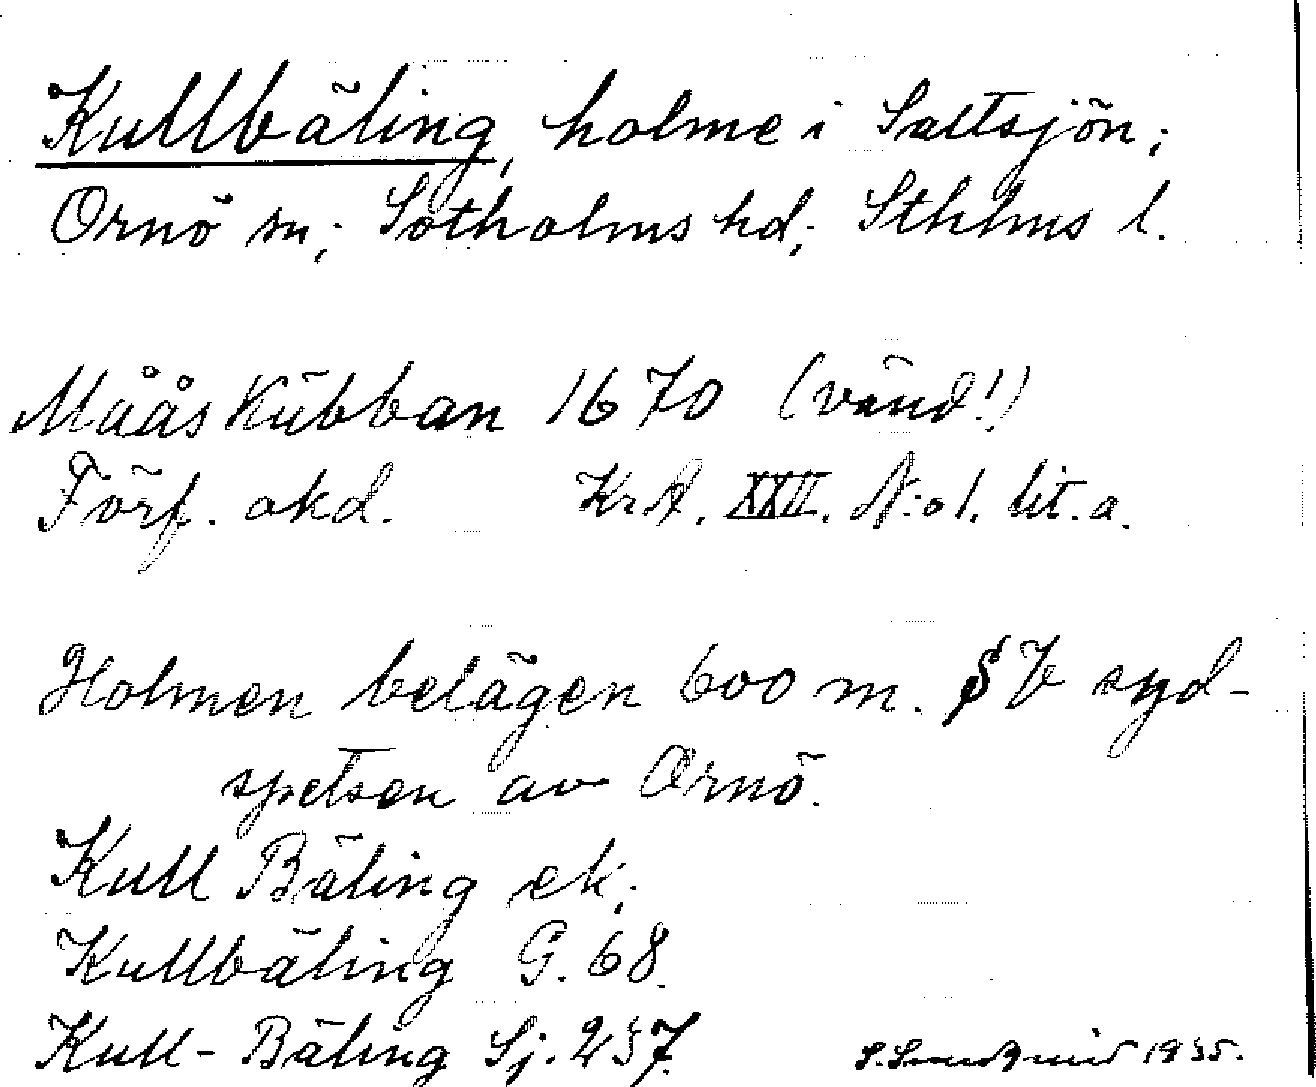 Kullbäling, holme i Saltsjön;
Ornö sn; Sotholms hd; Sthlms l.
Måås Kübban 1670 (vänd!)
Förf. akd. KrA. XXII. N:o 1. lit. a.
Holmen belägen 600 m. SV syd-
spetsen av Ornö.
Kull Bäling ek;
Kullbäling G. 68.
Kull-Bäling Sj. 257. 1935.